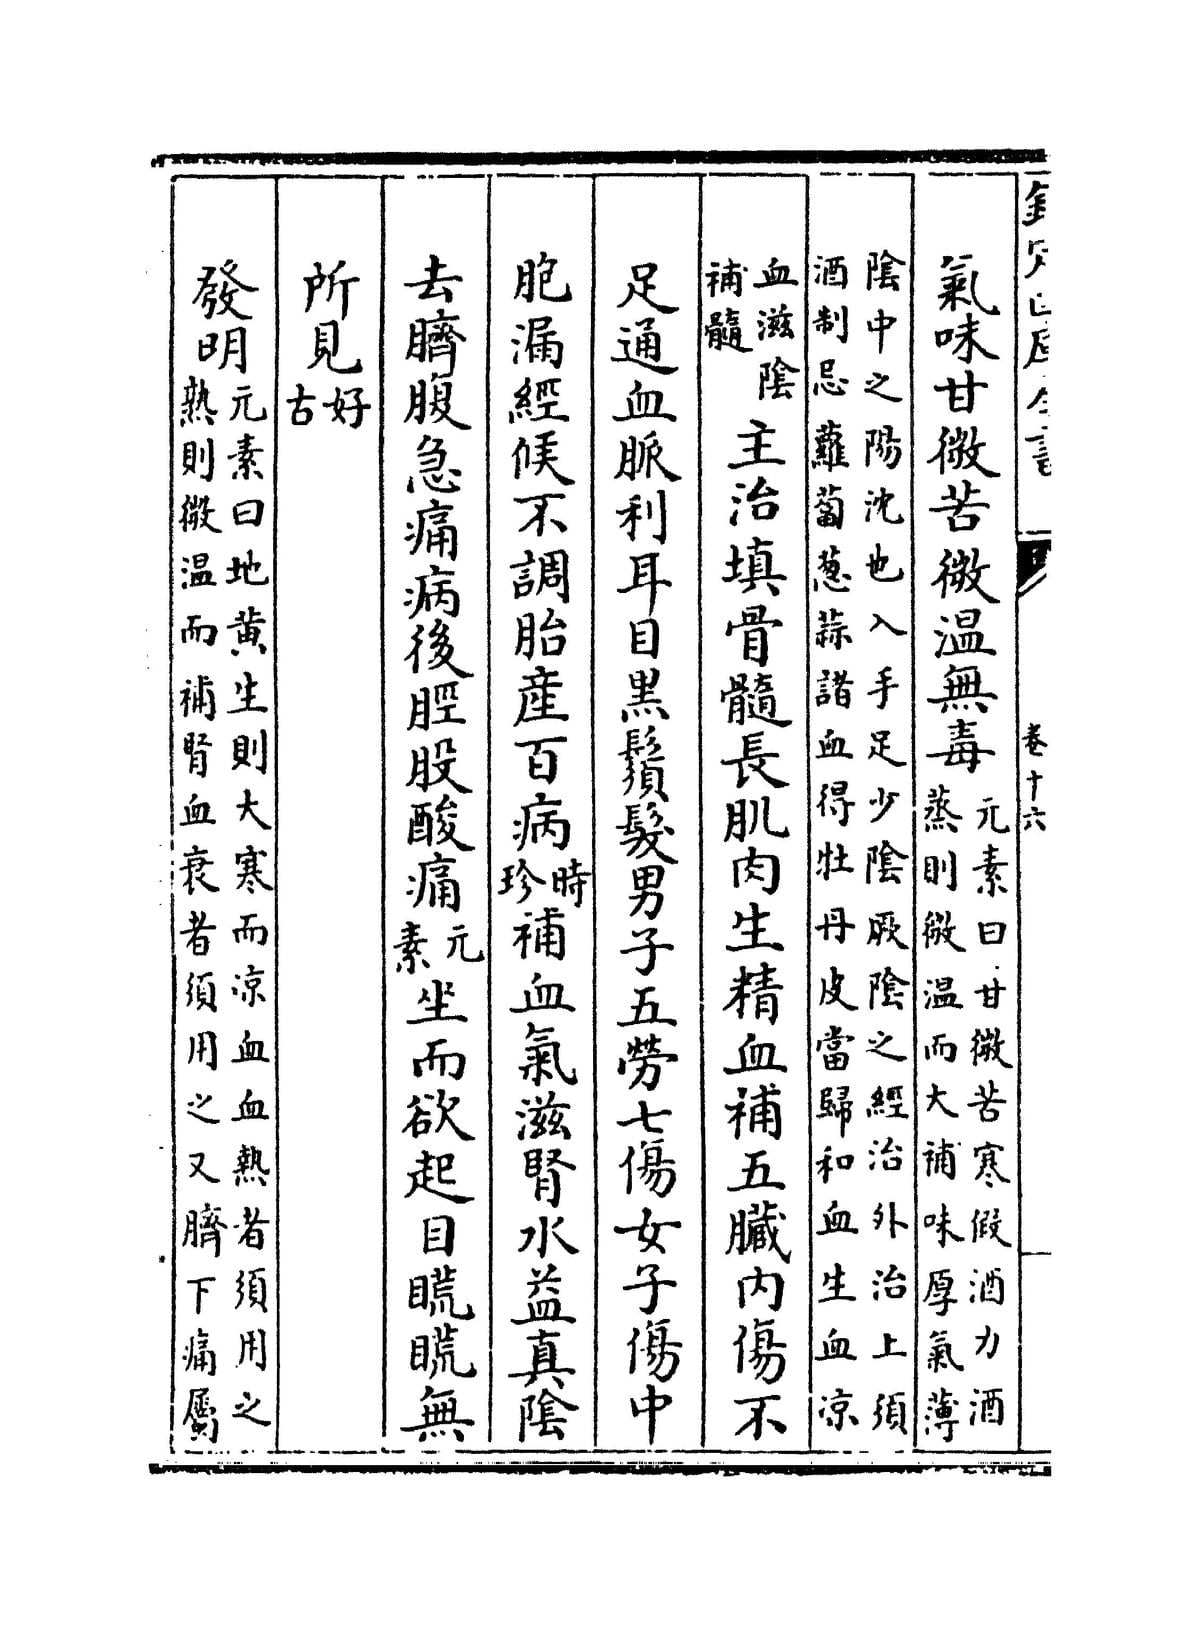 欽定四庫全書
卷十六
氣味甘微苦微温無毒元素曰甘微苦寒假酒力酒
蒸則微温而大補味厚氣薄
隂中之陽沈也入手足少隂厥隂之經治外治上須
酒制忌蘿蔔葱蒜諸血得牡丹皮當歸和血生血凉
血滋隂
補髓
主治填骨髓長肌肉生精血補五臟内傷不
足通血脈利耳目黒鬚髮男子五勞七傷女子傷中
胞漏經候不調胎産百病時珍補血氣滋腎水益真隂
去臍腹急痛病後脛股酸痛元素坐而欲起目䀮䀮無
所見好古
發明元素曰地黄生則大寒而凉血血熱者須用之
熟則微温而補腎血衰者須用之又臍下痛屬